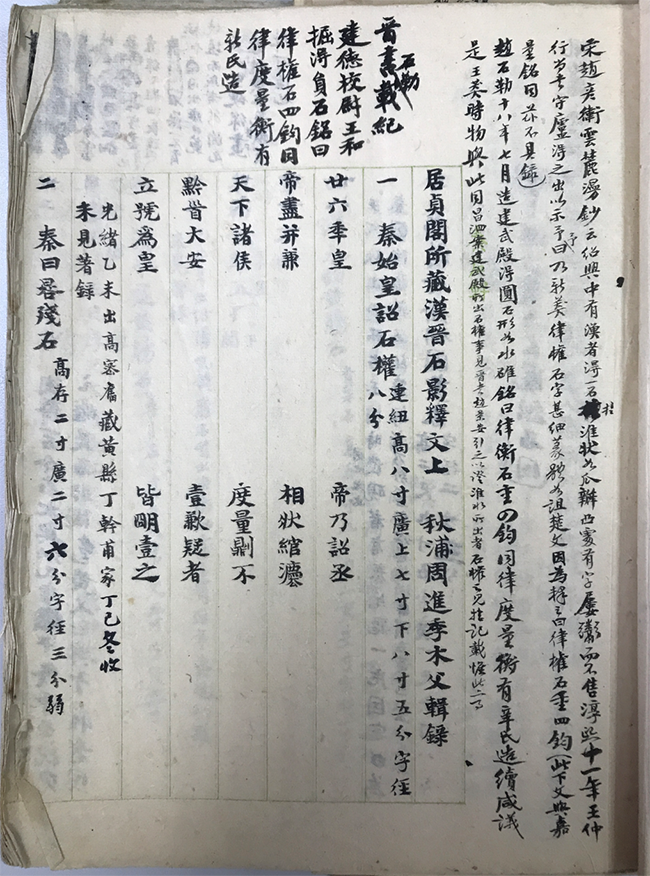 宋趙彥衛雲麓漫鈔云紹興中有漢者得一石權淮狀如瓜瓣四寰有字屢鬻而不售淳熙十一年王仲
行尚書守廬得之出以示予予曰乃新莽律權石字甚細篆體如詛楚文因為釋之曰律權石重四鈞(此下文與嘉
量銘同茲不具錄)
趙石勒十八年七月造建武殿得圓石形如水碓銘曰律權石重四鈞同律度量衡有辛氏造續咸議
是王莽時物與此同昌泗案建武殿所出石權事見晉書
晉書載紀石勒
建德校尉王和
掘得員石銘曰
律權石四鈞同
律度量衡有
新氏造
居貞閣所藏漢晉石影釋文上 秋浦周進季木父輯錄
一 秦始皇詔石權 連紐高八寸廣上七寸下八寸五分字徑
八分
廿六年皇 帝乃詔丞
帝盡并兼 相狀綰灋
天下諸侯 度量劓不
黔首大安 壹歉疑者
立號為皇 皆明壹之
光緒乙未出高密舊藏黃縣丁幹甫家丁巳冬收
未見著錄
二 秦曰㫺殘石 高存二寸廣二寸六分字徑三分弱